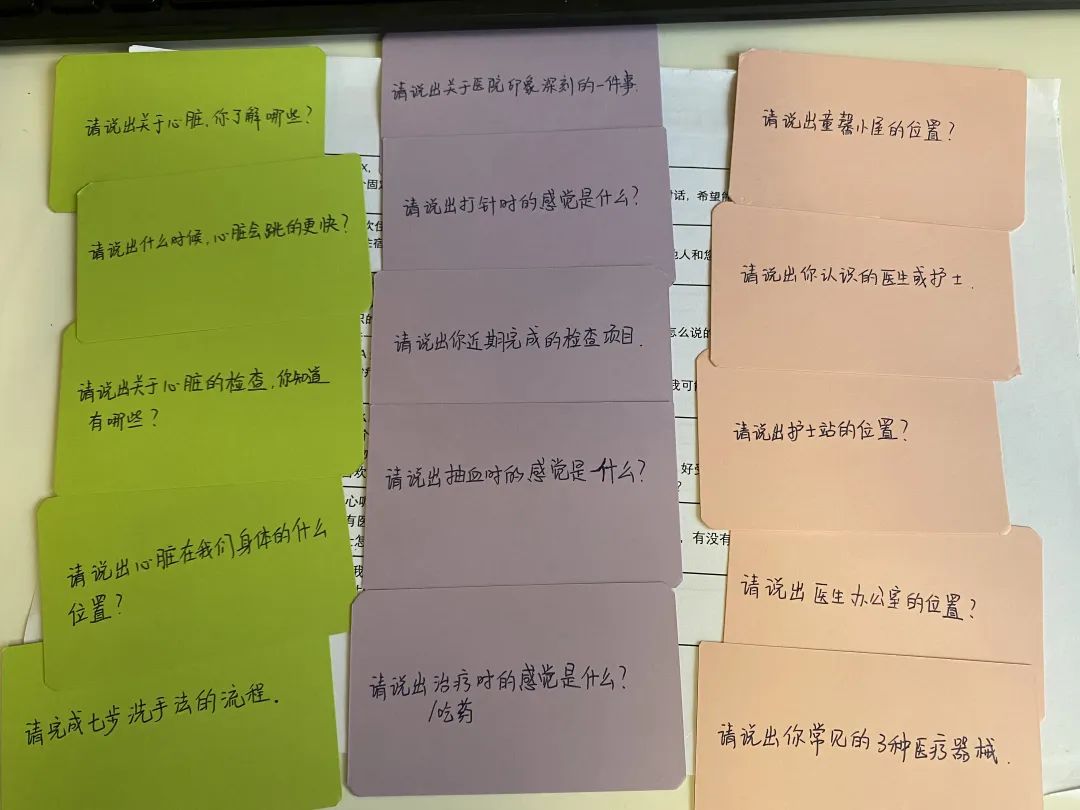 请说出关于心脏,你了解哪些?
请说出什么时候,心脏会跳的更快?
请说出关于心脏的检查,你知道
有哪些?
请说出心脏在我们身体的什么
位置?
请完成七步洗手法的流程.
请说出关于医院印象深刻的一件事.
请说出打针时的感觉是什么?
请说出你近期完成的检查项目.
请说出抽血时的感觉是什么?
请说出治疗时的感觉是什么?
/吃药
请说出童馨小屋的位置?
请说出你认识的医生或护士.
请说出护士站的位置?
请说出医生办公室的位置?
请说出你常见的3种医疗器械.
话,希望能
他人和您
怎么说的
我可能
好受
有没有